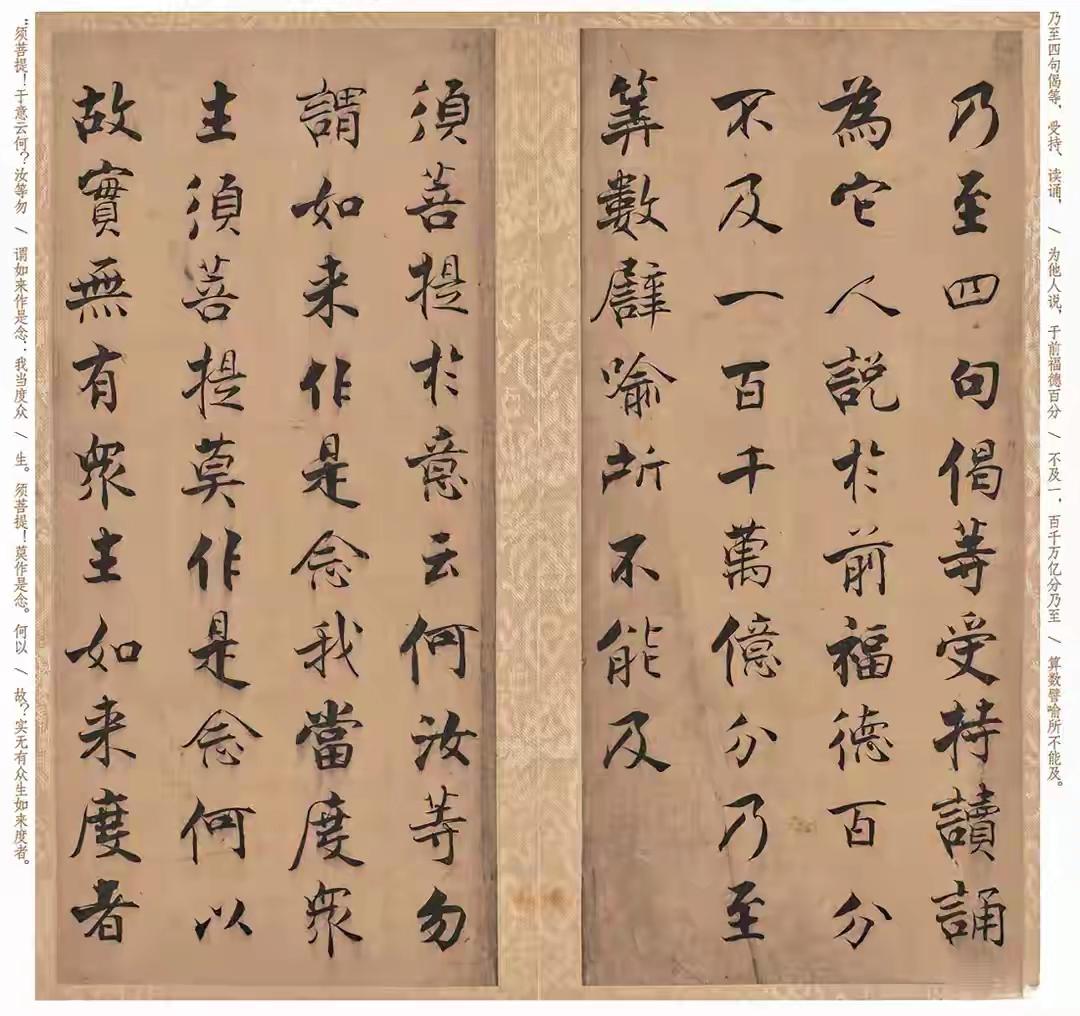 乃至四句偈等，受持、读诵， / 为他人说，于前福德百分 / 不及一，百千万亿分乃至 / 算数譬喻所不能及。
乃至四句偈等受持讀誦
為它人説於前福德百分
不及一百千萬億分乃至
筭數譬喻所不能及
須菩提於意云何汝等勿
謂如来作是念我當度衆
生須菩提莫作是念何以
故實無有衆生如来度者
：须菩提！于意云何？汝等勿 / 谓如来作是念：我当度众 / 生。须菩提！莫作是念。何以 / 故？实无有众生如来度者。